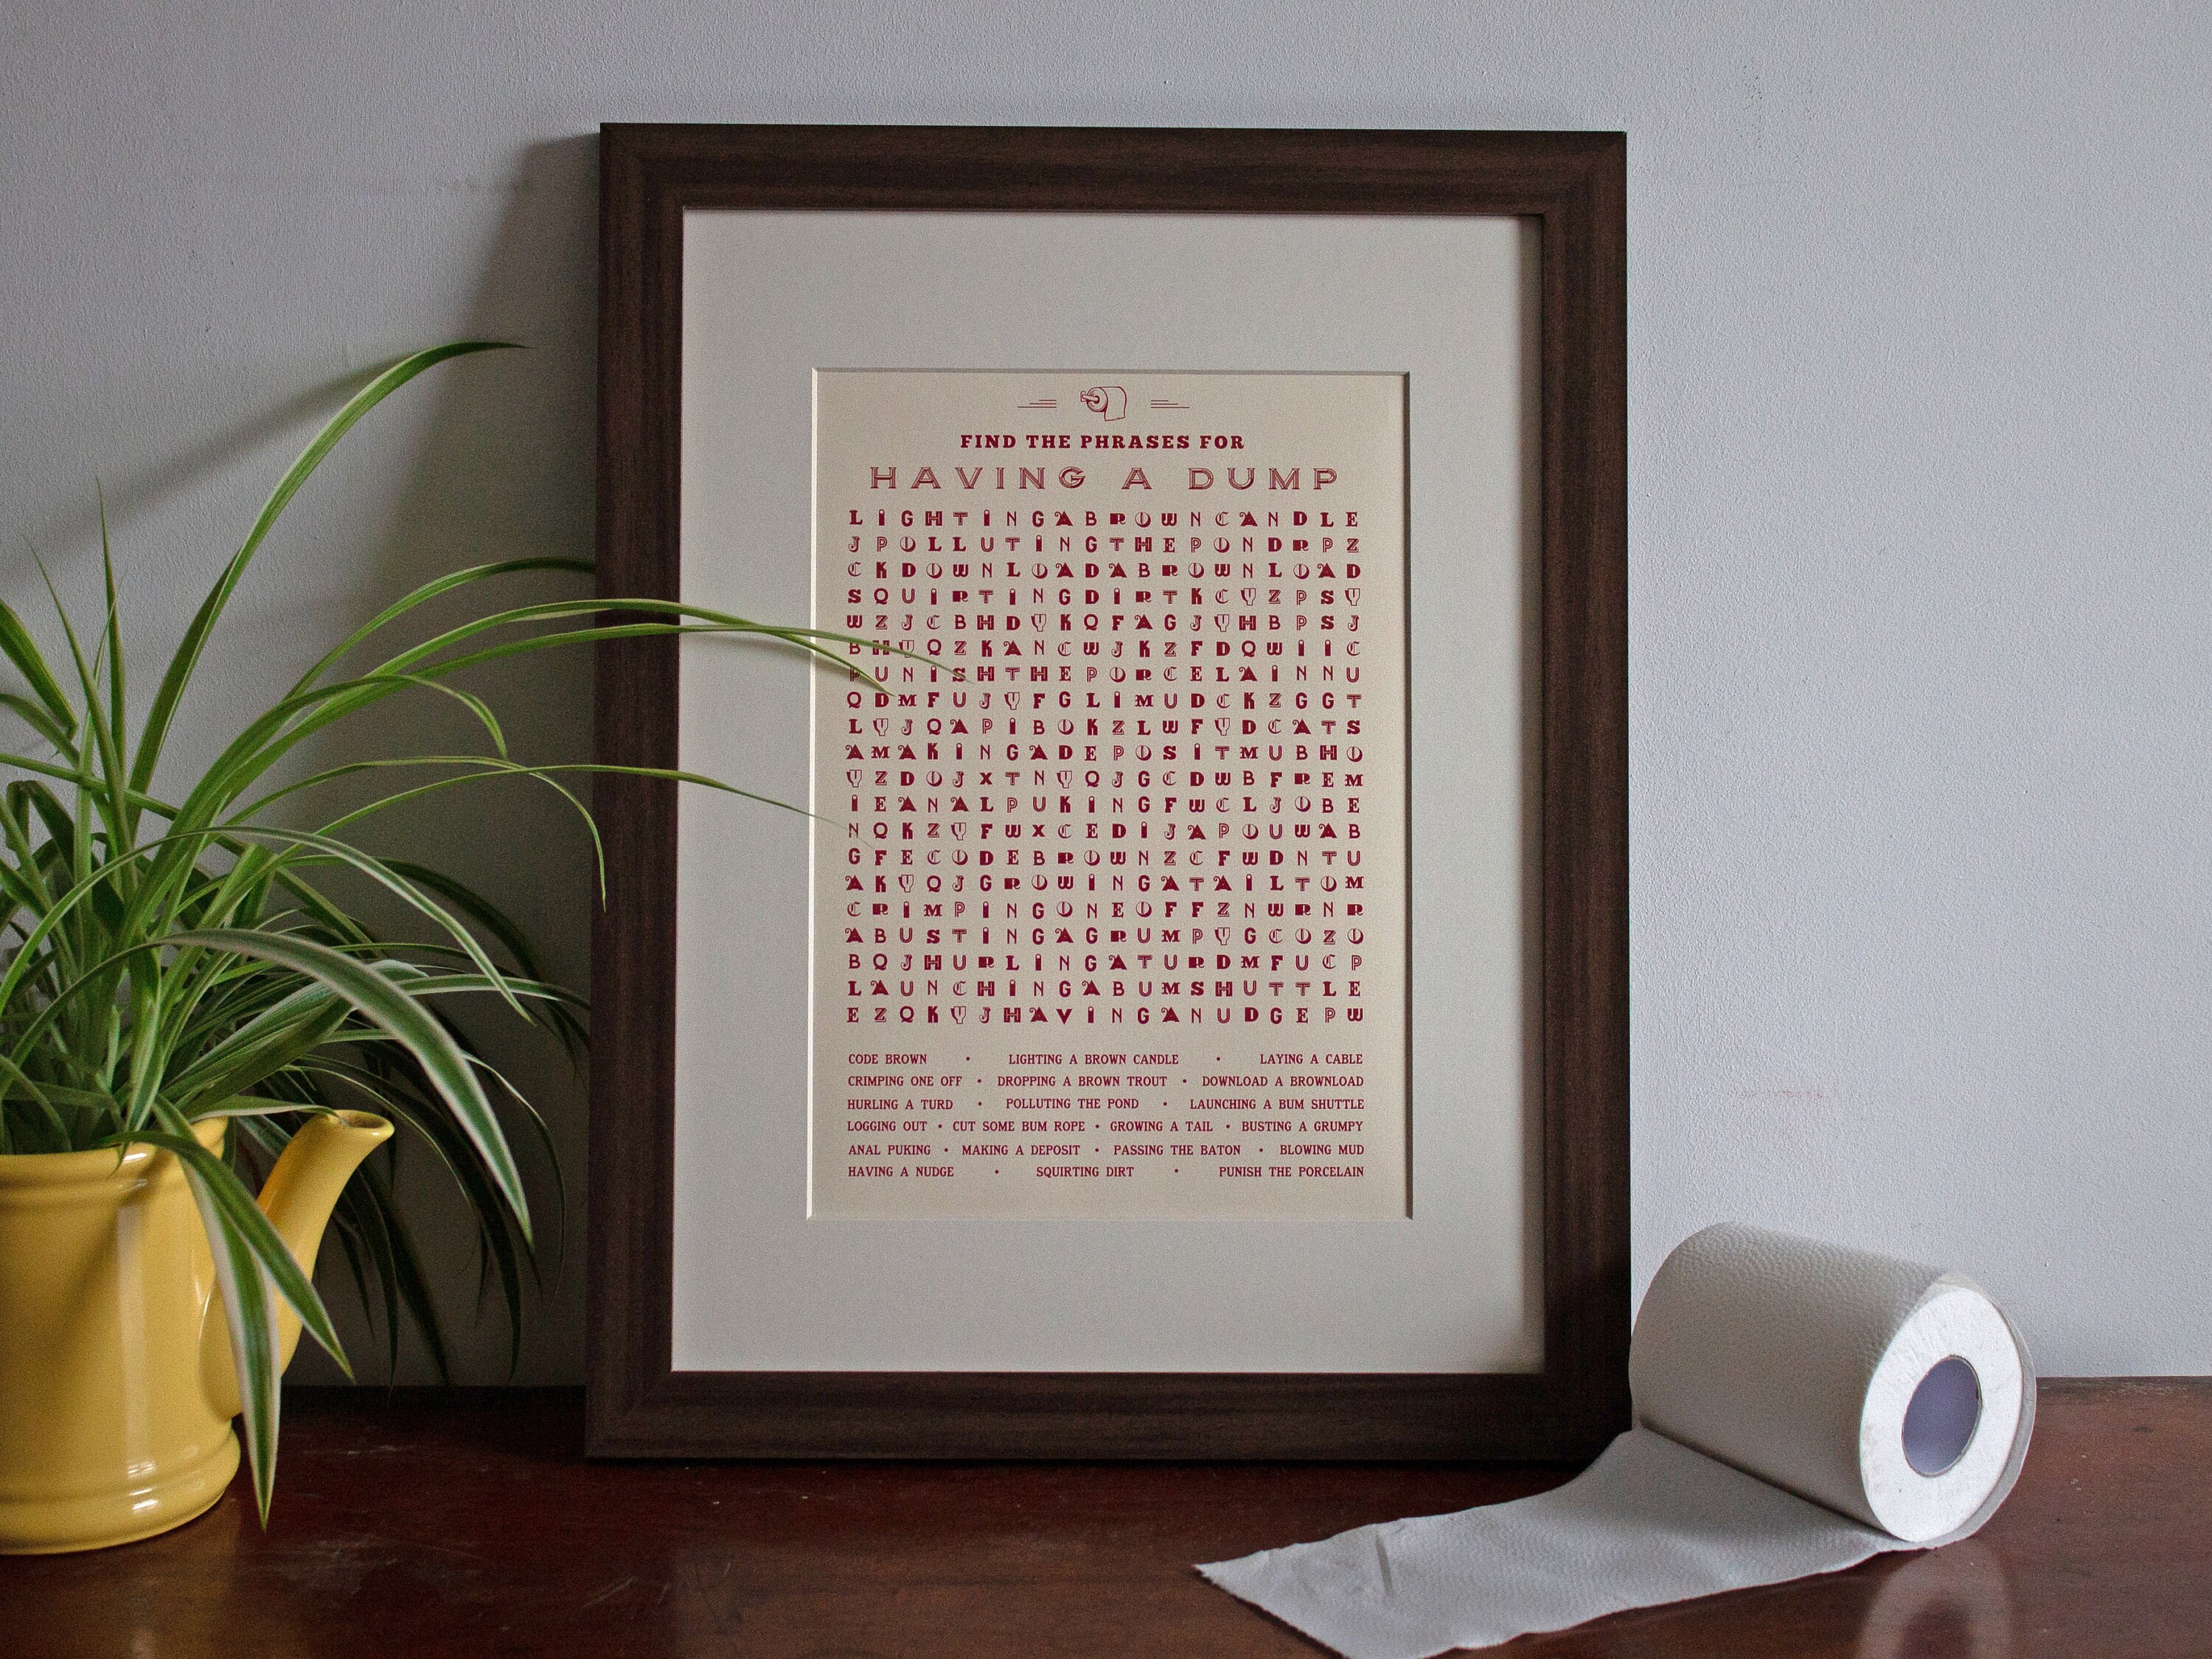 FIND THE PHRASES FOR
HAVING A DUMP
L I G H T I N G A B R O W N C A N D L E
J P O L L U T I N G T H E P O N D R P Z
C K D O W N L O A D A B R O W N L O A D
S Q U I R T I N G D I R T K C Y Z P S Y
W Z J C B H D Y K Q F A G J Y H B P S J
B H Y Q Z K A N C W J K Z F D Q W I I C
P U N I S H T H E P O R C E L A I N N U
Q D M F U J Y F G L I M U D C K Z G G T
L Y J Q A P I B O K Z L W F Y D C A T S
A M A K I N G A D E P O S I T M U B H O
Y Z D O J X T N Y Q J G C D W B F R E M
I E A N A L P U K I N G F W C L J O B E
N Q K Z Y F W X C E D I J A P O U W A B
G F E C O D E B R O W N Z C F W D N T U
A K Y Q J G R O W I N G A T A I L T O M
C R I M P I N G O N E O F F Z N W R N R
A B U S T I N G A G R U M P Y G C O Z O
B Q J H U R L I N G A T U R D M F U C P
L A U N C H I N G A B U M S H U T T L E
E Z Q K Y J H A V I N G A N U D G E P W
CODE BROWN • LIGHTING A BROWN CANDLE • LAYING A CABLE
CRIMPING ONE OFF • DROPPING A BROWN TROUT • DOWNLOAD A BROWNLOAD
HURLING A TURD • POLLUTING THE POND • LAUNCHING A BUM SHUTTLE
LOGGING OUT • CUT SOME BUM ROPE • GROWING A TAIL • BUSTING A GRUMPY
ANAL PUKING • MAKING A DEPOSIT • PASSING THE BATON • BLOWING MUD
HAVING A NUDGE • SQUIRTING DIRT • PUNISH THE PORCELAIN